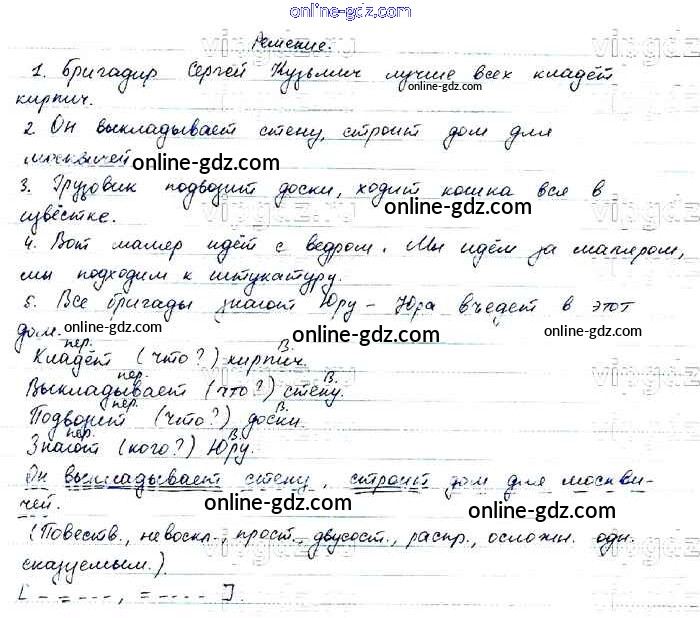 online-gdz.com
Решение.
1. Бригадир Сергей Кузьмич лучше всех кладёт
online-gdz.com
кирпич.
2. Он выкладывает стену, строит дом для
москвичей
online-gdz.com
online-gdz.com
3. Грузовик подвозит доски, ходит кошка вся в
online-gdz.com
извёстке.
4. Вот маляр идёт с ведром. Мы идём за маляром,
online-gdz.com
мы подходим к штукатуру.
5. Все бригады знают Юру – Юра въедет в этот
дом.
online-gdz.com
online-gdz.com
online-gdz.com
пер. В.
Кладёт (что?) кирпич.
пер. В.
Выкладывает (что?) стену.
пер. В.
Подвозит (что?) доски.
online-gdz.com
пер. В.
Знают (кого?) Юру.
online-gdz.com
Он выкладывает стену, строит дом для москви-
чей.
online-gdz.com
online-gdz.com
(Повеств., невоскл., прост., двусост., распр., осложн. одн.
online-gdz.com
сказуемым.).
[ - = - - - , = - - - - ].
online-gdz.com